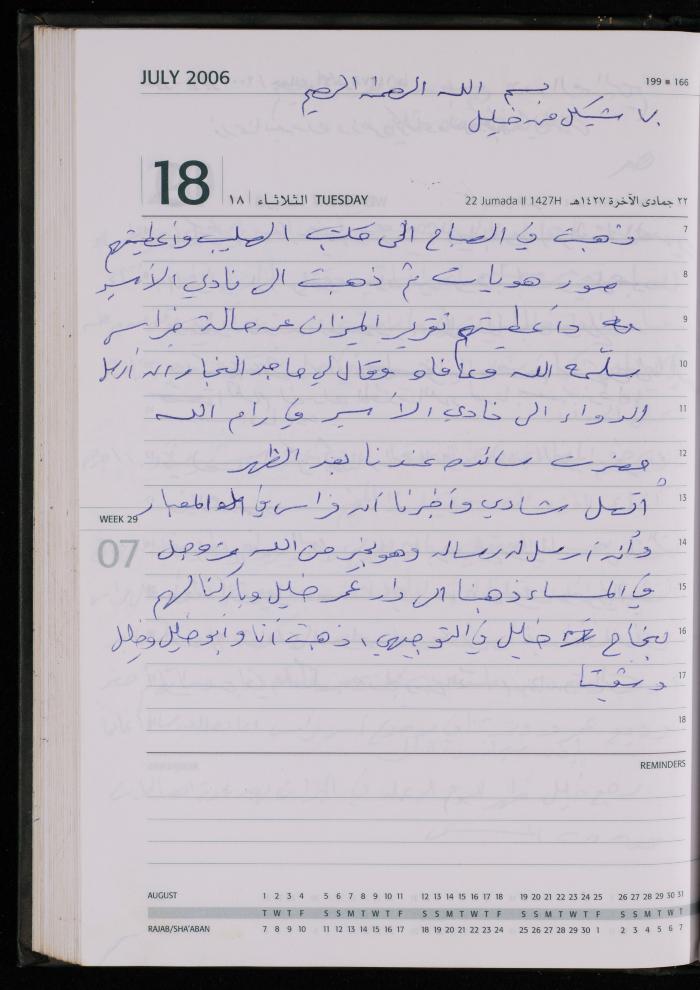 JULY 2006
199 ■ 166
بسم الله الرحمن الرحيم
٧٠ شيكل من خليل
18
١٨ الثلاثاء TUESDAY
22 Jumada II 1427H ٢٢ جمادى الآخرة ١٤٢٧هـ
7 وذهبت في الصباح الى مكتب الصليب وأعطيتهم
8 صور هويات ثم ذهبت الى نادي الأسير
9 وأعطيتهم تقرير الميزان عن حالة فراس
10 سلمه الله وعافاه وقال لي ماجد النجار انه أرسل
11 الدواء الى نادي الأسير في رام الله
12 حضرت سائده عندنا بعد الظهر
13 أتصل شادي وأخبرنا أن فراس في المعبار
WEEK 29
07
14 وأنه أرسل له رساله وهو بخير من الله عز وجل
15 في المساء ذهبنا الى دار عمر خليل وباركنا لهم
16 بنجاح خليل في التوجيهي، ذهبت أنا وابو خليل وخليل
17
18
REMINDERS
AUGUST 1 2 3 4 5 6 7 8 9 10 11 12 13 14 15 16 17 18 19 20 21 22 23 24 25 26 27 28 29 30 31
T W T F S S M T W T F S S M T W T F S S M T W T F S S M T W T
RAJAB/SHA'ABAN 7 8 9 10 11 12 13 14 15 16 17 18 19 20 21 22 23 24 25 26 27 28 29 30 1 2 3 4 5 6 7